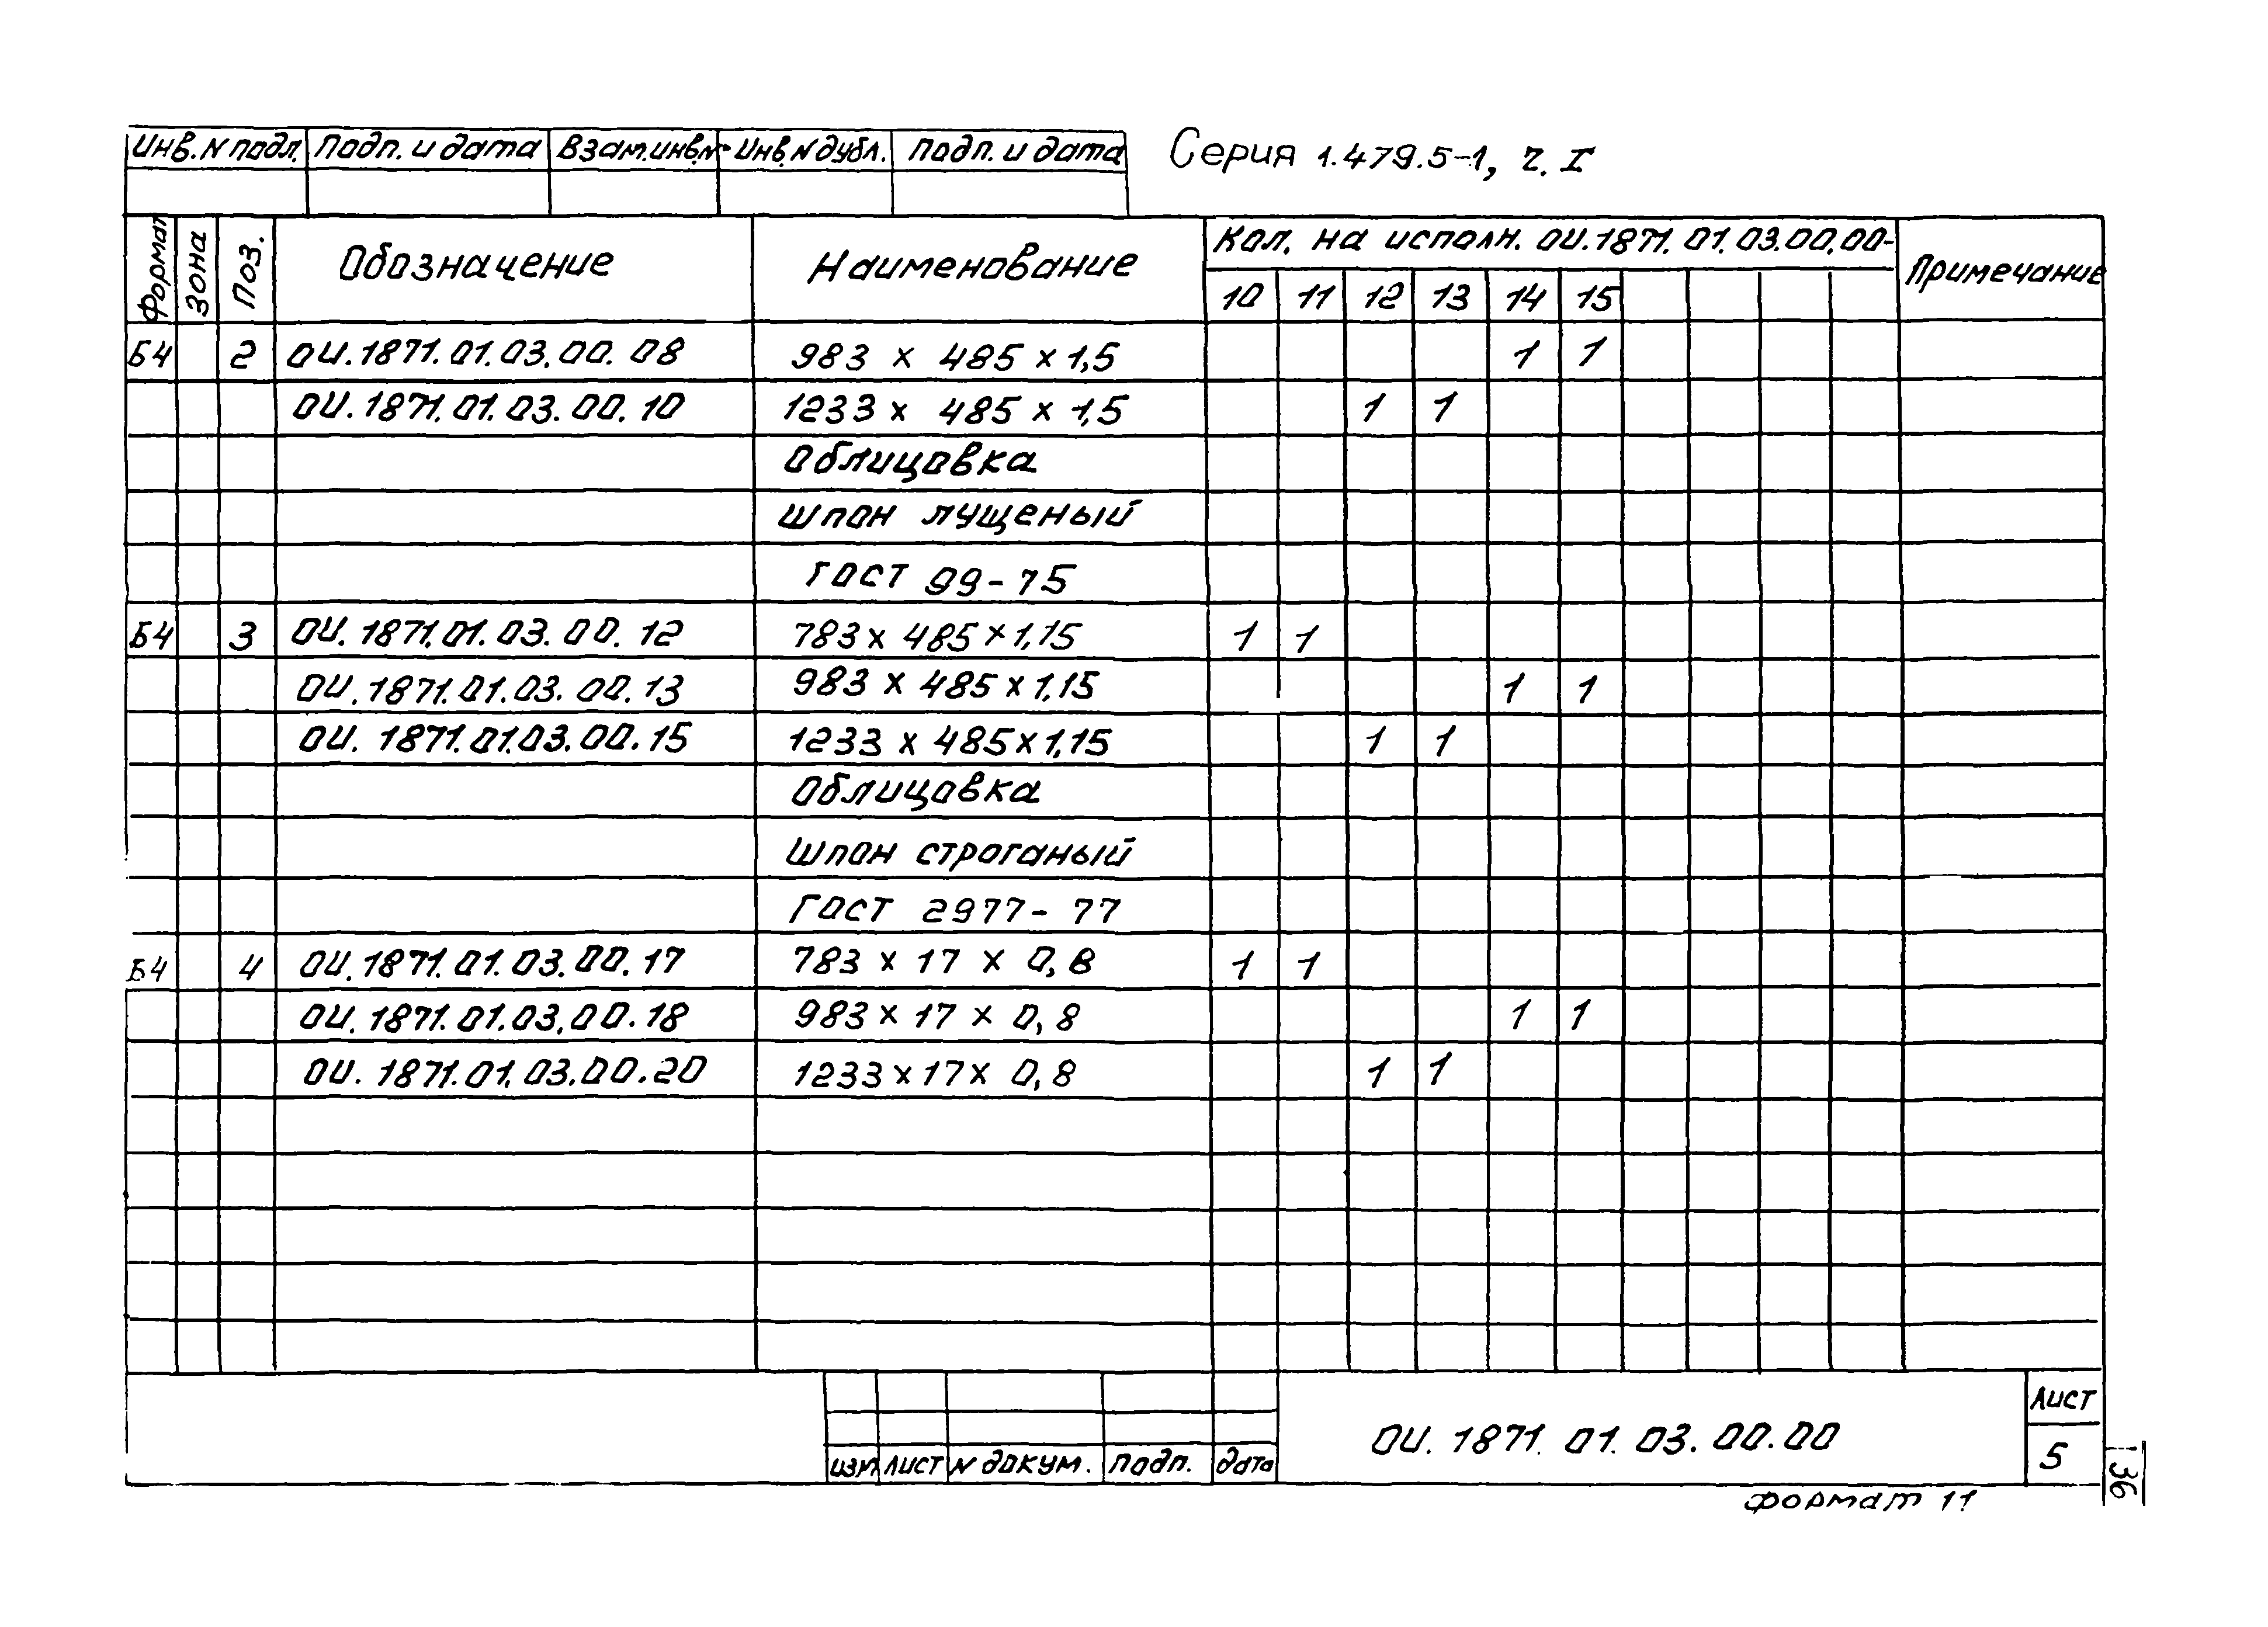 Инв. N подл. Подп. и дата Взам.инв.N Инв.N дубл. Подп. и дата Серия 1.479.5-1, ч. I
Формат Зона Поз. Обозначение Наименование Кол. на исполн. ОИ.1871.01.03.00.00- Примечание
10 11 12 13 14 15
Б4 2 ОИ.1871.01.03.00.08 983 х 485 х 1,5 1 1
ОИ.1871.01.03.00.10 1233 х 485 х 1,5 1 1
Облицовка
шпон лущеный
ГОСТ 99-75
Б4 3 ОИ.1871.01.03.00.12 783 х 485 х 1,15 1 1
ОИ.1871.01.03.00.13 983 х 485 х 1,15 1 1
ОИ.1871.01.03.00.15 1233 х 485 х 1,15 1 1
Облицовка
Шпон строганый
ГОСТ 2977-77
Б4 4 ОИ.1871.01.03.00.17 783 х 17 х 0,8 1 1
ОИ.1871.01.03.00.18 983 х 17 х 0,8 1 1
ОИ.1871.01.03.00.20 1233 х 17 х 0,8 1 1
изм лист N докум. подп. дата ОИ.1871.01.03.00.00 Лист
5
формат 11
36